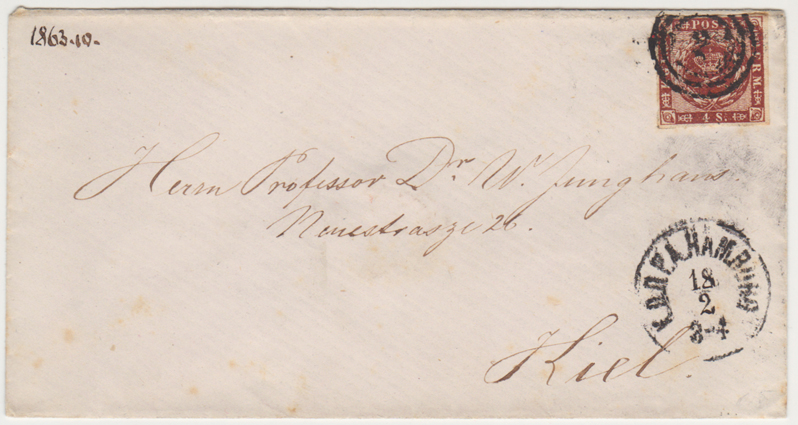 1863.10.
POST
R.B.M.
4 S.
Herrn Professor Dr. W. Junghans.
Neuestrasze 26.
K.D.O.P.A. HAMBURG
18
2
3-4
Kiel.